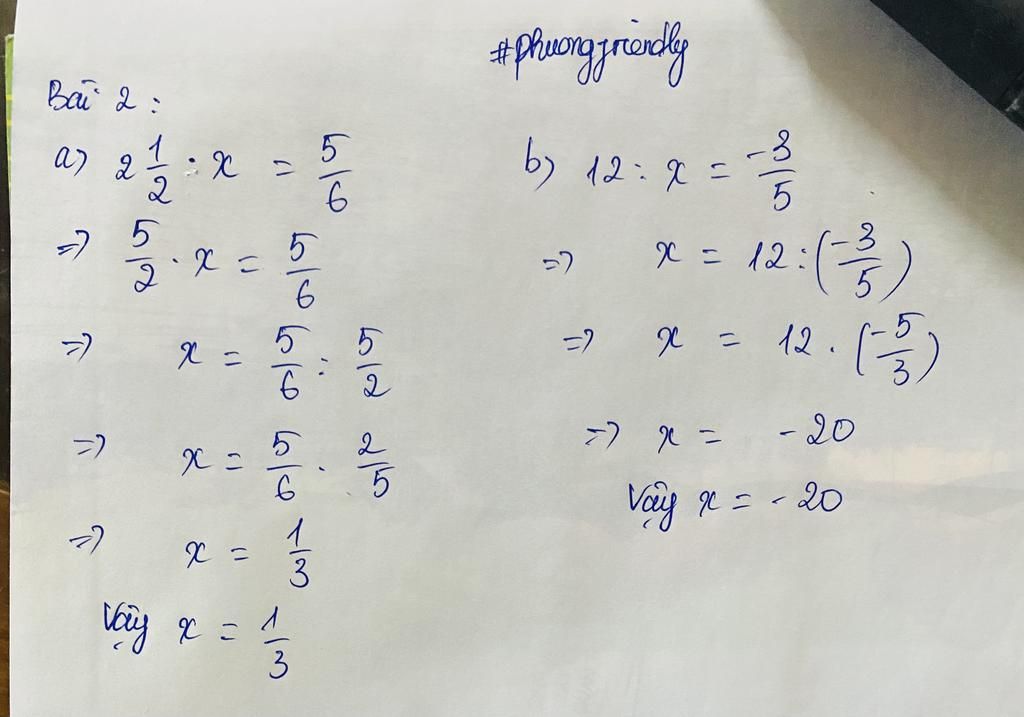 #phuongfriendly
Bài 2:
a) 2 1/2 : x = 5/6
=> 5/2 . x = 5/6
=> x = 5/6 : 5/2
=> x = 5/6 . 2/5
=> x = 1/3
Vậy x = 1/3
b) 12 : x = -3/5
=> x = 12 : (-3/5)
=> x = 12 . (-5/3)
=> x = -20
Vậy x = -20